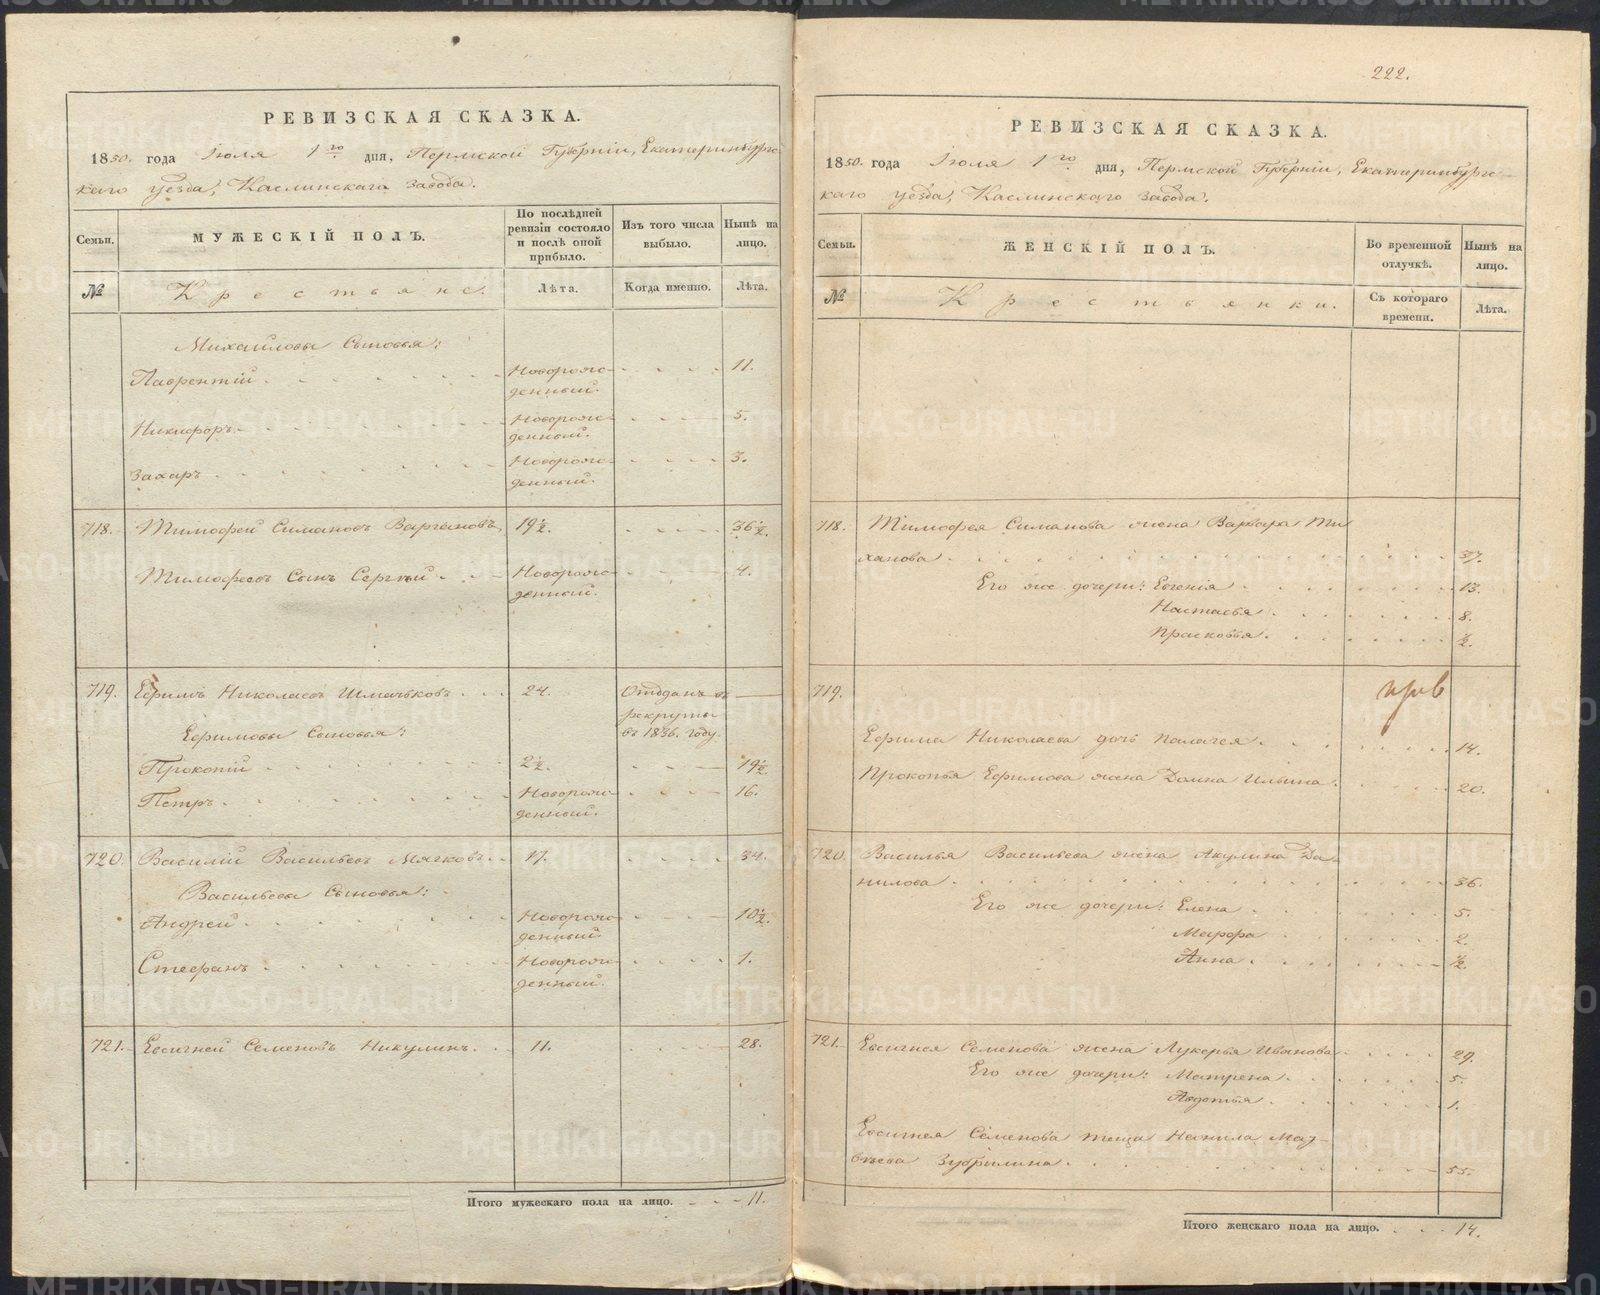 РЕВИЗСКАЯ СКАЗКА.
1850. года Іюля 1го дня, Пермской Губерніи, Екатеринбургс-
каго уезда, Каслинскаго завода.
Семьи. МУЖЕСКІЙ ПОЛЪ. По послѣдней ревизіи состояло и послѣ оной прибыло. Изъ того числа выбыло. Нынѣ на лицо.
№ Крестьяне. Лѣта. Когда именно. Лѣта.
Михайловы Сыновья:
Лаврентій Новорож- 11.
денный.
Никифоръ Новорож- 5.
денный.
Захаръ Новорож- 3.
денный.
718. Тимофей Симановъ Варгановъ, 19½. 36½.
Тимофеевъ Сынъ Сергѣй Новорож- 4.
денный.
719. Ефимъ Николаевъ 24. Отданъ въ
рекруты
Ефимовы Сыновья: въ 1836. году.
Прокопій 2½. 19½.
Петръ Новорож- 16.
денный.
720. Василій Васильевъ Мягковъ 17. 34.
Васильевы Сыновья:
Андрей Новорож- 10½.
денный.
Стефанъ Новорож- 1.
денный.
721. Евсигней Семеновъ Никулинъ 11. 28.
Итого мужескаго пола на лицо. 11.
222.
РЕВИЗСКАЯ СКАЗКА.
1850. года Іюля 1го дня, Пермской Губерніи, Екатеринбургс-
каго уезда, Каслинскаго завода.
Семьи. ЖЕНСКІЙ ПОЛЪ. Во временной отлучкѣ. Нынѣ на лицо.
№ Крестьянки. Съ котораго времени. Лѣта.
718. Тимофея Симанова жена Варвара Ти-
ханова 37.
Его же дочери: Евгенія 13.
Настасья 8.
Прасковья ½.
719.
Ефима Николаева дочь Палагея 14.
Прокопья Ефимова жена Домна Ильина 20.
720. Василья Васильева жена Акулина Да-
нилова 36.
Его же дочери: Елена 5.
Марфа 2.
Анна ½.
721. Евсигнея Семенова жена Лукерья Иванова 29.
Его же дочери: Матрена 5.
Авдотья 1.
Евсигнея Семенова теща Ненила Мат-
вѣева Зубрилина 55.
Итого женскаго пола на лицо. 14.
METRIKI.GASO-URAL.RU